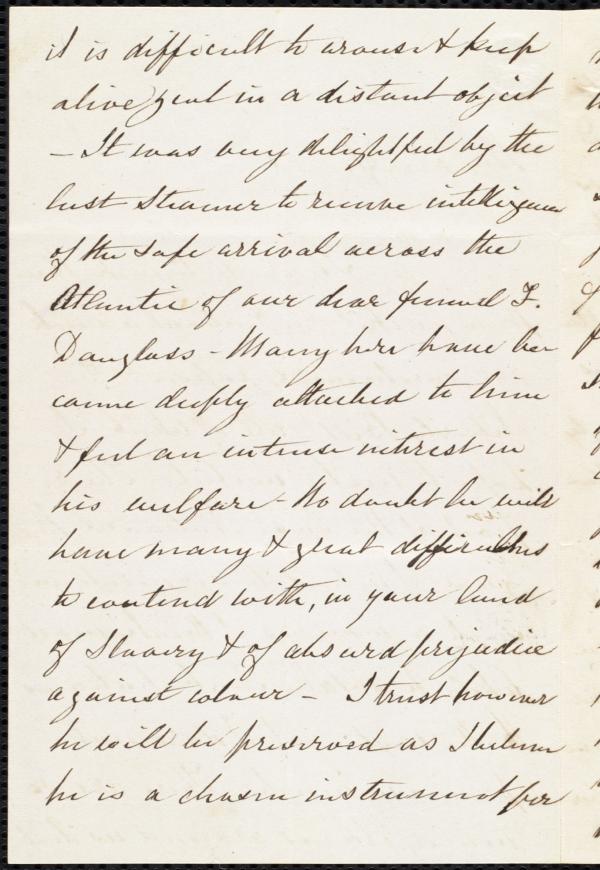 it is difficult to arouse & keep
alive zeal in a distant object
- It was very delightful by the
last Steamer to receive intelligence
of the safe arrival across the
Atlantic of our dear friend F.
Douglass - Many here have be
came deeply attached to him
& feel an intense interest in
his welfare - No doubt he will
have many & great difficulties
to contend with, in your land
of Slavery & of absurd prejudice
against colour - I trust however
he will be preserved as I believe
he is a chosen instrument for